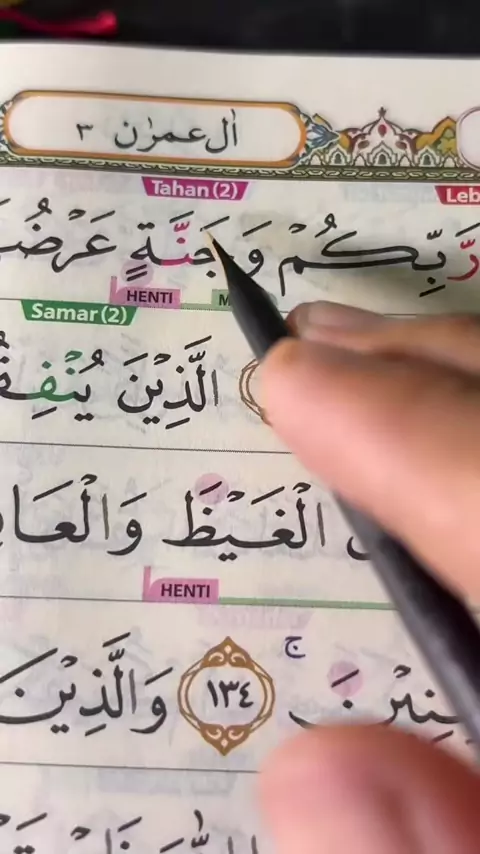 اٰل عمرٰن ٣
Tahan (2)
Leb
رَّبِّكُمْ وَجَنَّةٍ عَرْضُ
HENTI
M
Samar (2)
الَّذِيْنَ يُنْفِ
الْغَيْظَ وَالْعَا
HENTI
ج
نِيْنَ ١٣٤ وَالَّذِيْنَ